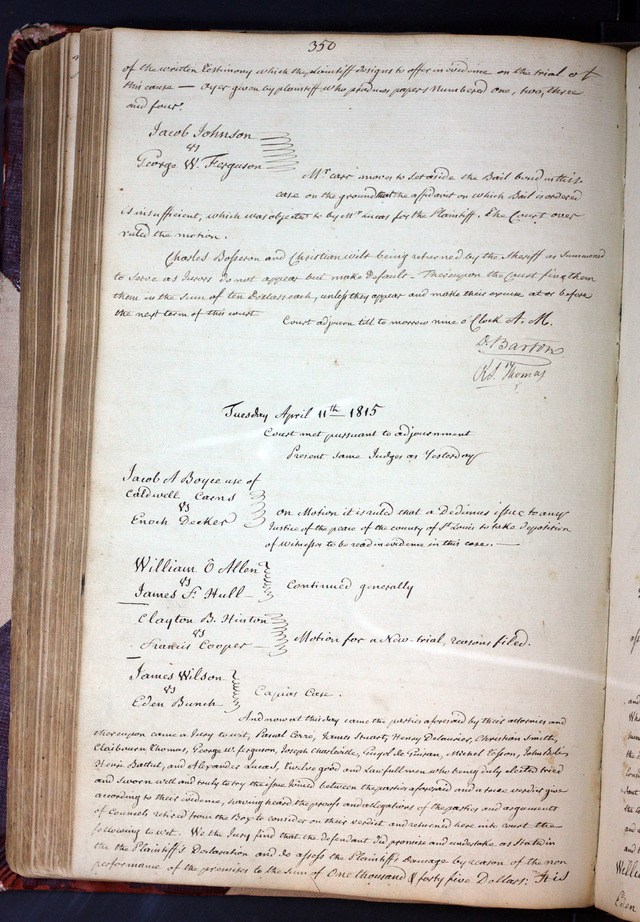 350
of the written testimony which the plaintiff designs to offer in evidence on the trial of
this cause — Oyer given by plaintiff who produces papers numbered one, two, three
and four.
Jacob Johnson
vs
George W. Ferguson
Mr Carr moves to set aside the Bail bond in this
case on the ground that the affidavit on which Bail is ordered
is insufficient, which was objected to by Mr Lucas for the Plaintiff. The Court over
ruled the motion.
Charles Bosseron and Christian Wilt being returned by the Sheriff as Summoned
to serve as Jurors do not appear but make default. Thereupon the Court fine them
them in the sum of ten Dollars each, unless they appear and make their excuse at or before
the next term of this court
Court adjourn till to morrow nine o'Clock A. M.
D. Barton
Rd. S. Thomas
Tuesday April 11th 1815
Court met pursuant to adjournment
Present same Judges as Yesterday
Jacob A Boyce use of
Caldwell Carns
vs
Enoch Decker
On Motion it is ruled that a Dedimus issue to any
Justice of the peace of the county of St Louis to take deposition
of witnesses to be read in evidence in this case. —
William O Allen
vs
James F. Hull
Continued generally
Clayton B. Hinton
vs
Francis Cooper
Motion for a New trial, reasons filed.
James Wilson
vs
Eden Bunch
Capias Case.
And now at this day came the parties aforesaid by their attornies and
thereupon came a Jury to wit, Pascal Cerre, James Stuart, Henry Delaurier, Christian Smith,
Claibourn Thomas, George W. Ferguson, Joseph Charleville, Guyol de Guiran, Michel Tesson, John
and Alexander Lucas, twelve good and lawful men who being duly elected tried
and sworn well and truly to try the issue Joined between the parties aforesaid and a true verdict give
according to their evidence, having heard the proofs and allegations of the parties and arguments
of Councels retired from the Bar to consider on their verdict and returned here into court the
following to wit. We the Jury find that the defendant did promise and undertake as stated in
the the Plaintiff's Declaration and do assess the Plaintiffs damage by reason of the non
performance of the premises to the Sum of One thousand & forty five Dollars: It is